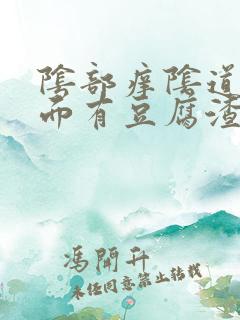 陰部痒陰道
而有豆腐渣
馮開升
未经同意禁止转载